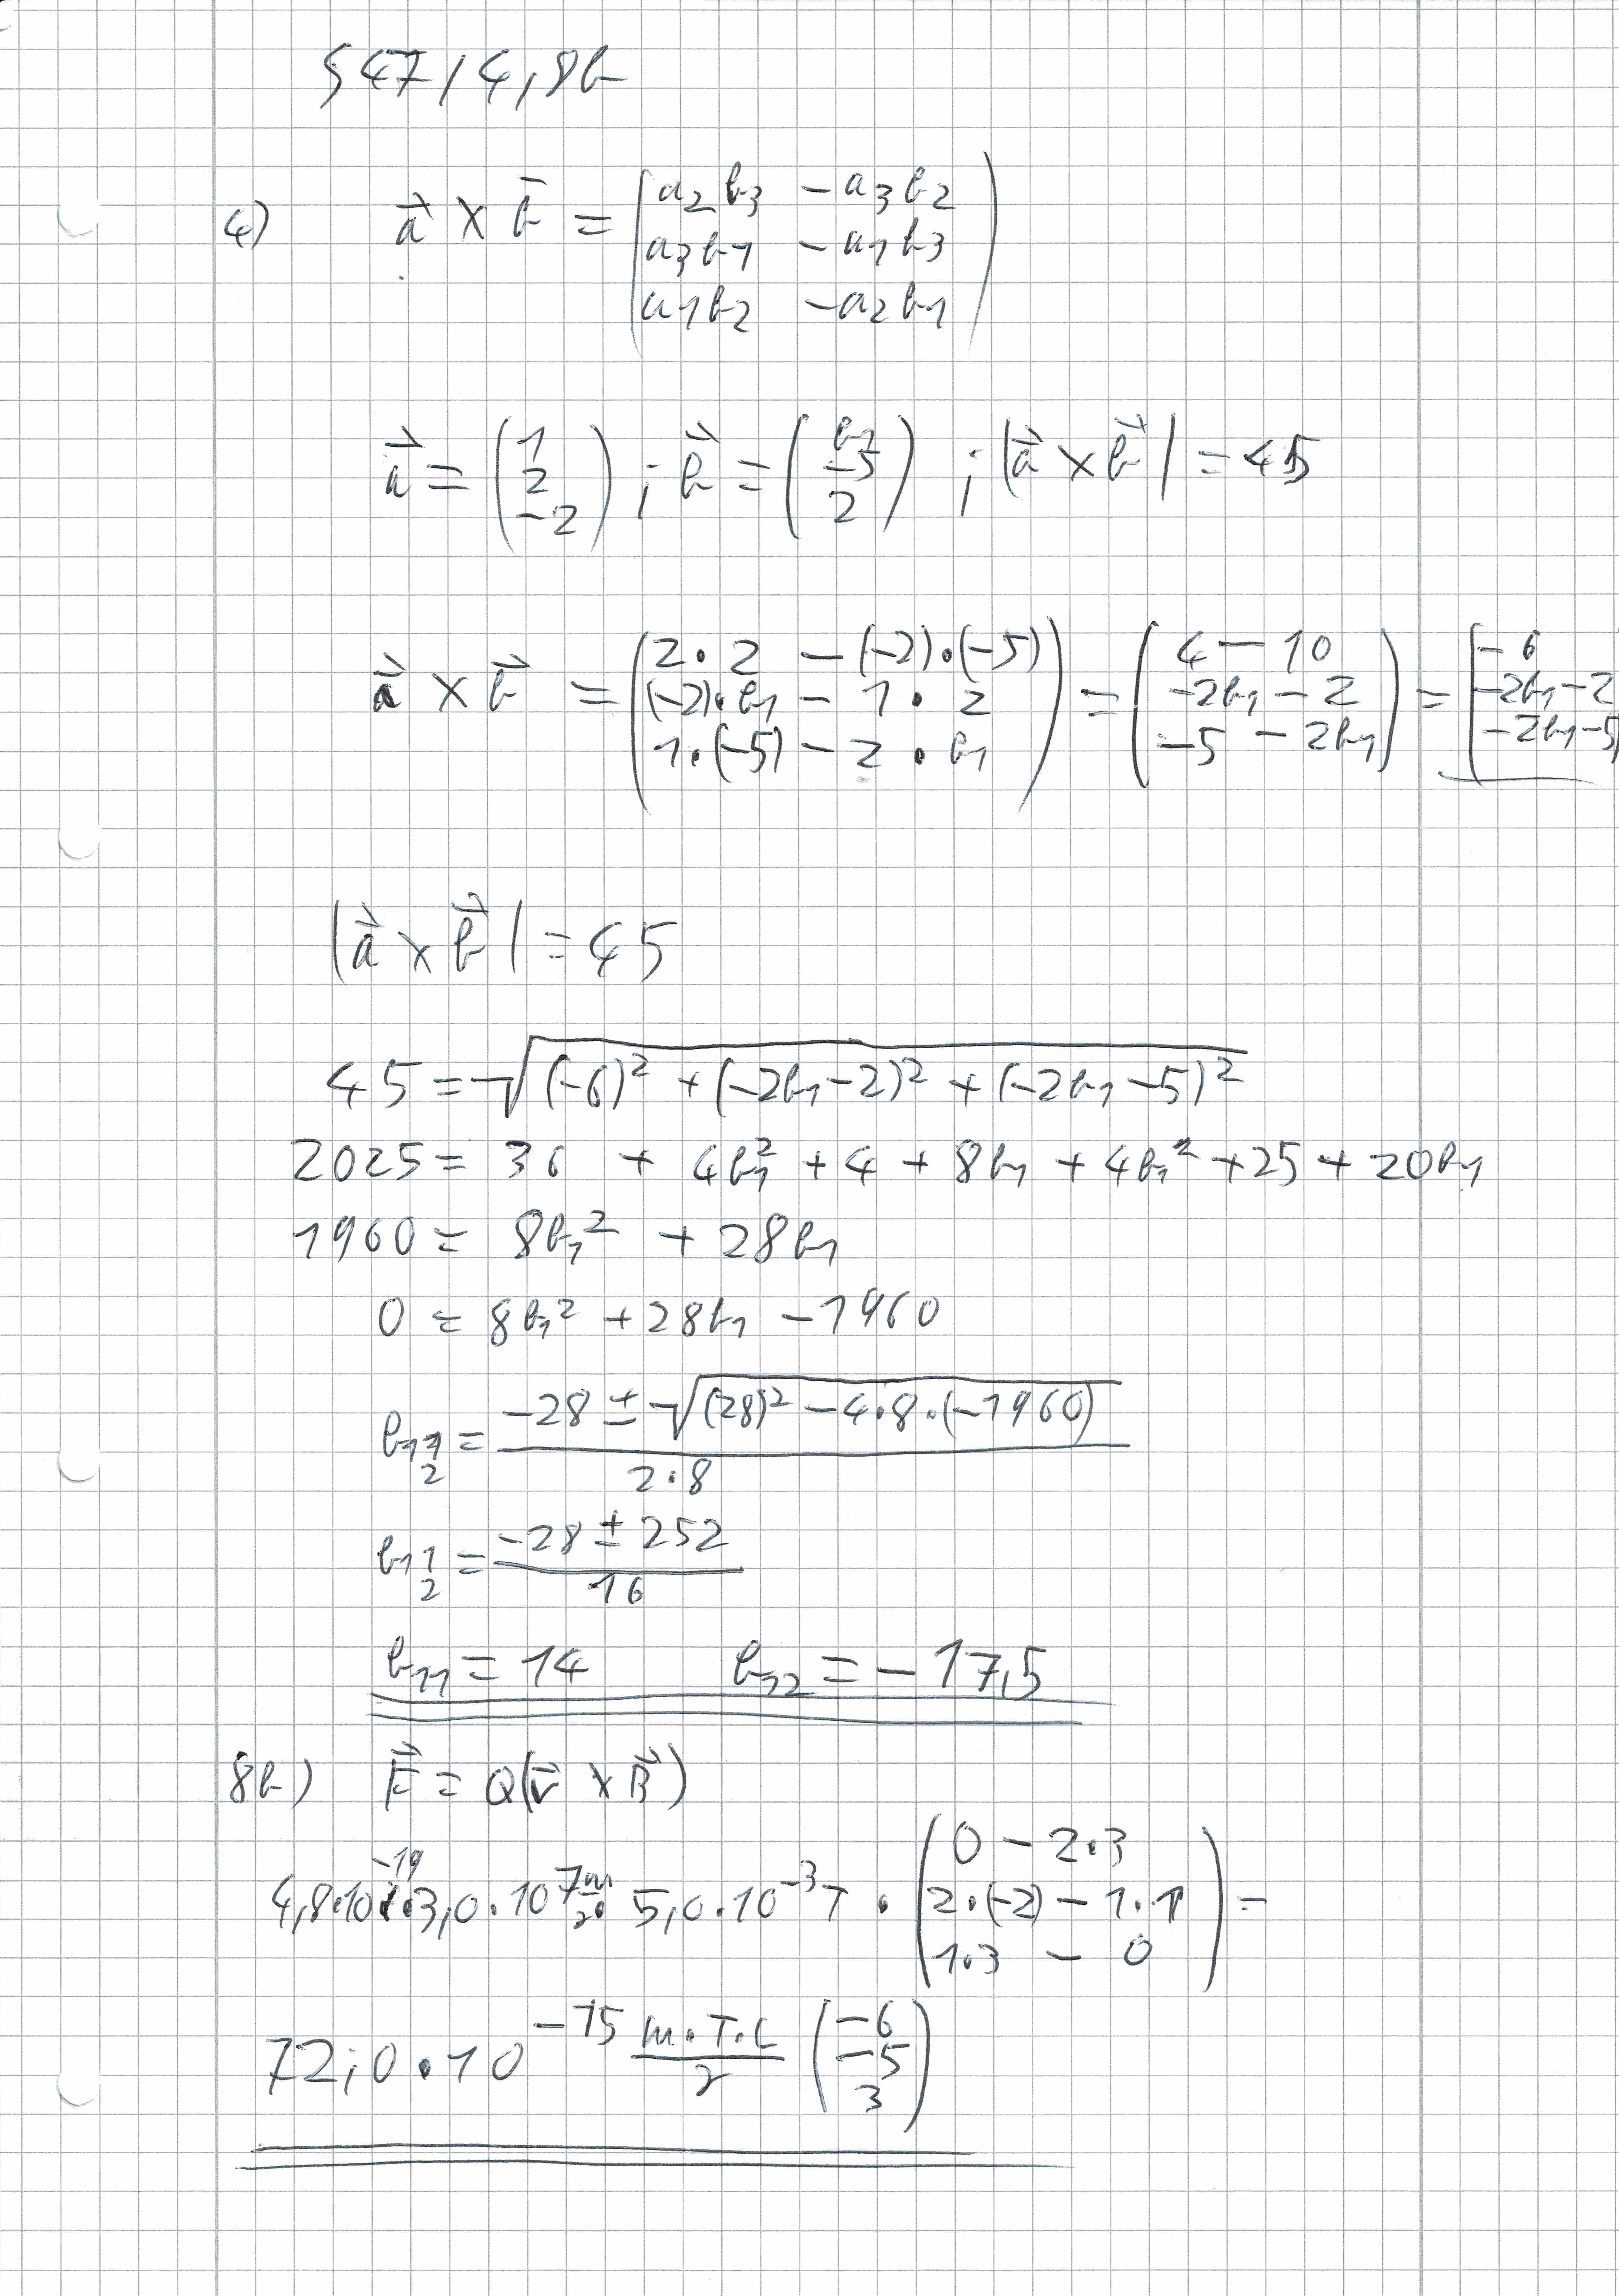 S47/4,8b
4) a⃗ × b⃗ = ( a₂b₃ - a₃b₂
a₃b₁ - a₁b₃
a₁b₂ - a₂b₁ )
a⃗ = ( 1
2
-2 ) ; b⃗ = ( b₁
-5
2 ) ; |a⃗ × b⃗| = 45
a⃗ × b⃗ = ( 2·2 - (-2)·(-5)
(-2)·b₁ - 1·2
1·(-5) - 2·b₁ ) = ( 4 - 10
-2b₁ - 2
-5 - 2b₁ ) = ( -6
-2b₁-2
-2b₁-5
|a⃗ × b⃗| = 45
45 = √((-6)² + (-2b₁-2)² + (-2b₁-5)²)
2025 = 36 + 4b₁² + 4 + 8b₁ + 4b₁² + 25 + 20b₁
1960 = 8b₁² + 28b₁
0 = 8b₁² + 28b₁ - 1960
b₁ 1 2 = (-28 ± √((28)² - 4·8·(-1960))) / 2·8
b₁ 1 2 = (-28 ± 252) / 16
b₁₁ = 14 b₁₂ = -17,5
8b) F⃗ = Q(v⃗ × B⃗)
4,8·10⁻¹⁹·3,0·10⁷ m/s · 5,0·10⁻³T · ( 0 - 2·3
2·(-2) - 1·1
1·3 - 0 ) =
72,0·10⁻¹⁵ m·T·C/s ( -6
-5
3 )